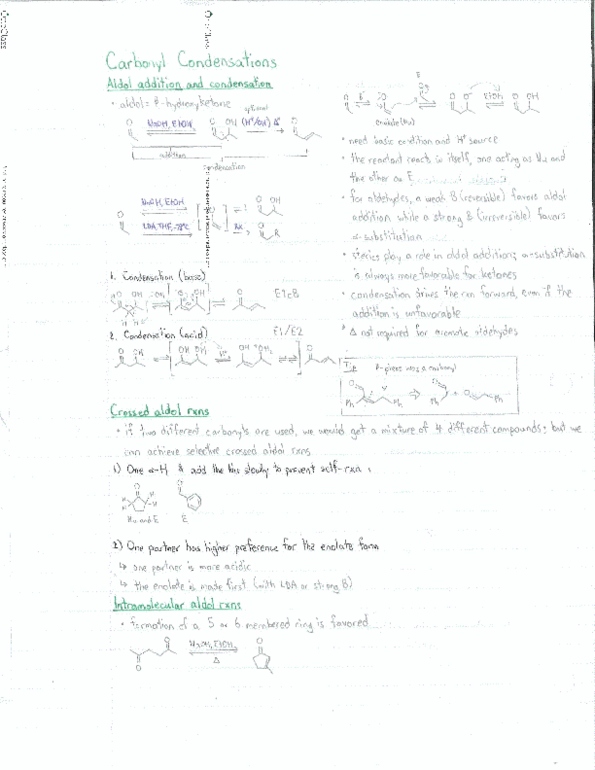 Carbonyl Condensations
Aldol addition and condensation
• aldol = β-hydroxyketone
NaOH, EtOH
OH
optional
(H⁺/OH⁻) Δ
addition
condensation
NaOH, EtOH
LDA, THF, -78°C
RX
EtOH
enolate (Nu)
• need basic condition and H⁺ source
• the reactant reacts w itself, one acting as Nu and
the other as E
• for aldehydes, a weak B (reversible) favors aldol
addition while a strong B (irreversible) favors
α-substitution
• sterics play a role in aldol addition; α-substitution
is always more favorable for ketones
• condensation drives the rxn forward, even if the
addition is unfavorable
* Δ not required for aromatic aldehydes
1. Condensation (base)
E1cB
2. Condensation (acid)
E1/E2
Tip
β-piece was a carbonyl
Ph
Ph
Ph
Ph
Crossed aldol rxns
• if two different carbonyls are used, we would get a mixture of 4 different compounds; but we
can achieve selective crossed aldol rxns
1) One α-H & add the this slowly to prevent self-rxn
Nu and E
E
2) One partner has higher preference for the enolate form
↳ one partner is more acidic
↳ the enolate is made first (with LDA or strong B)
Intramolecular aldol rxns
• formation of a 5 or 6 membered ring is favored
Δ